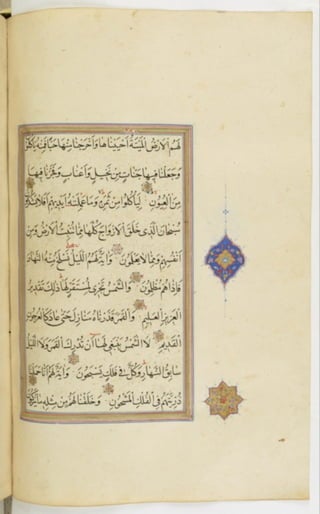 لهم الارض الميتة احييناها واخرجنا منها حبا فمنه ياكلون
وجعلنا فيها جنات من نخيل واعناب وفجرنا فيها
من العيون لياكلوا من ثمره وما عملته ايديهم افلا يشكرون
سبحان الذى خلق الازواج كلها مما تنبت الارض ومن
انفسهم ومما لا يعلمون واية لهم الليل نسلخ منه النهار
فاذا هم مظلمون والشمس تجرى لمستقر لها ذلك تقدير
العزيز العليم والقمر قدرناه منازل حتى عاد كالعرجون
القديم لا الشمس ينبغى لها ان تدرك القمر ولا الليل
سابق النهار وكل فى فلك يسبحون واية لهم انا حملنا
ذريتهم فى الفلك المشحون وخلقنا لهم من مثله ما يركبون